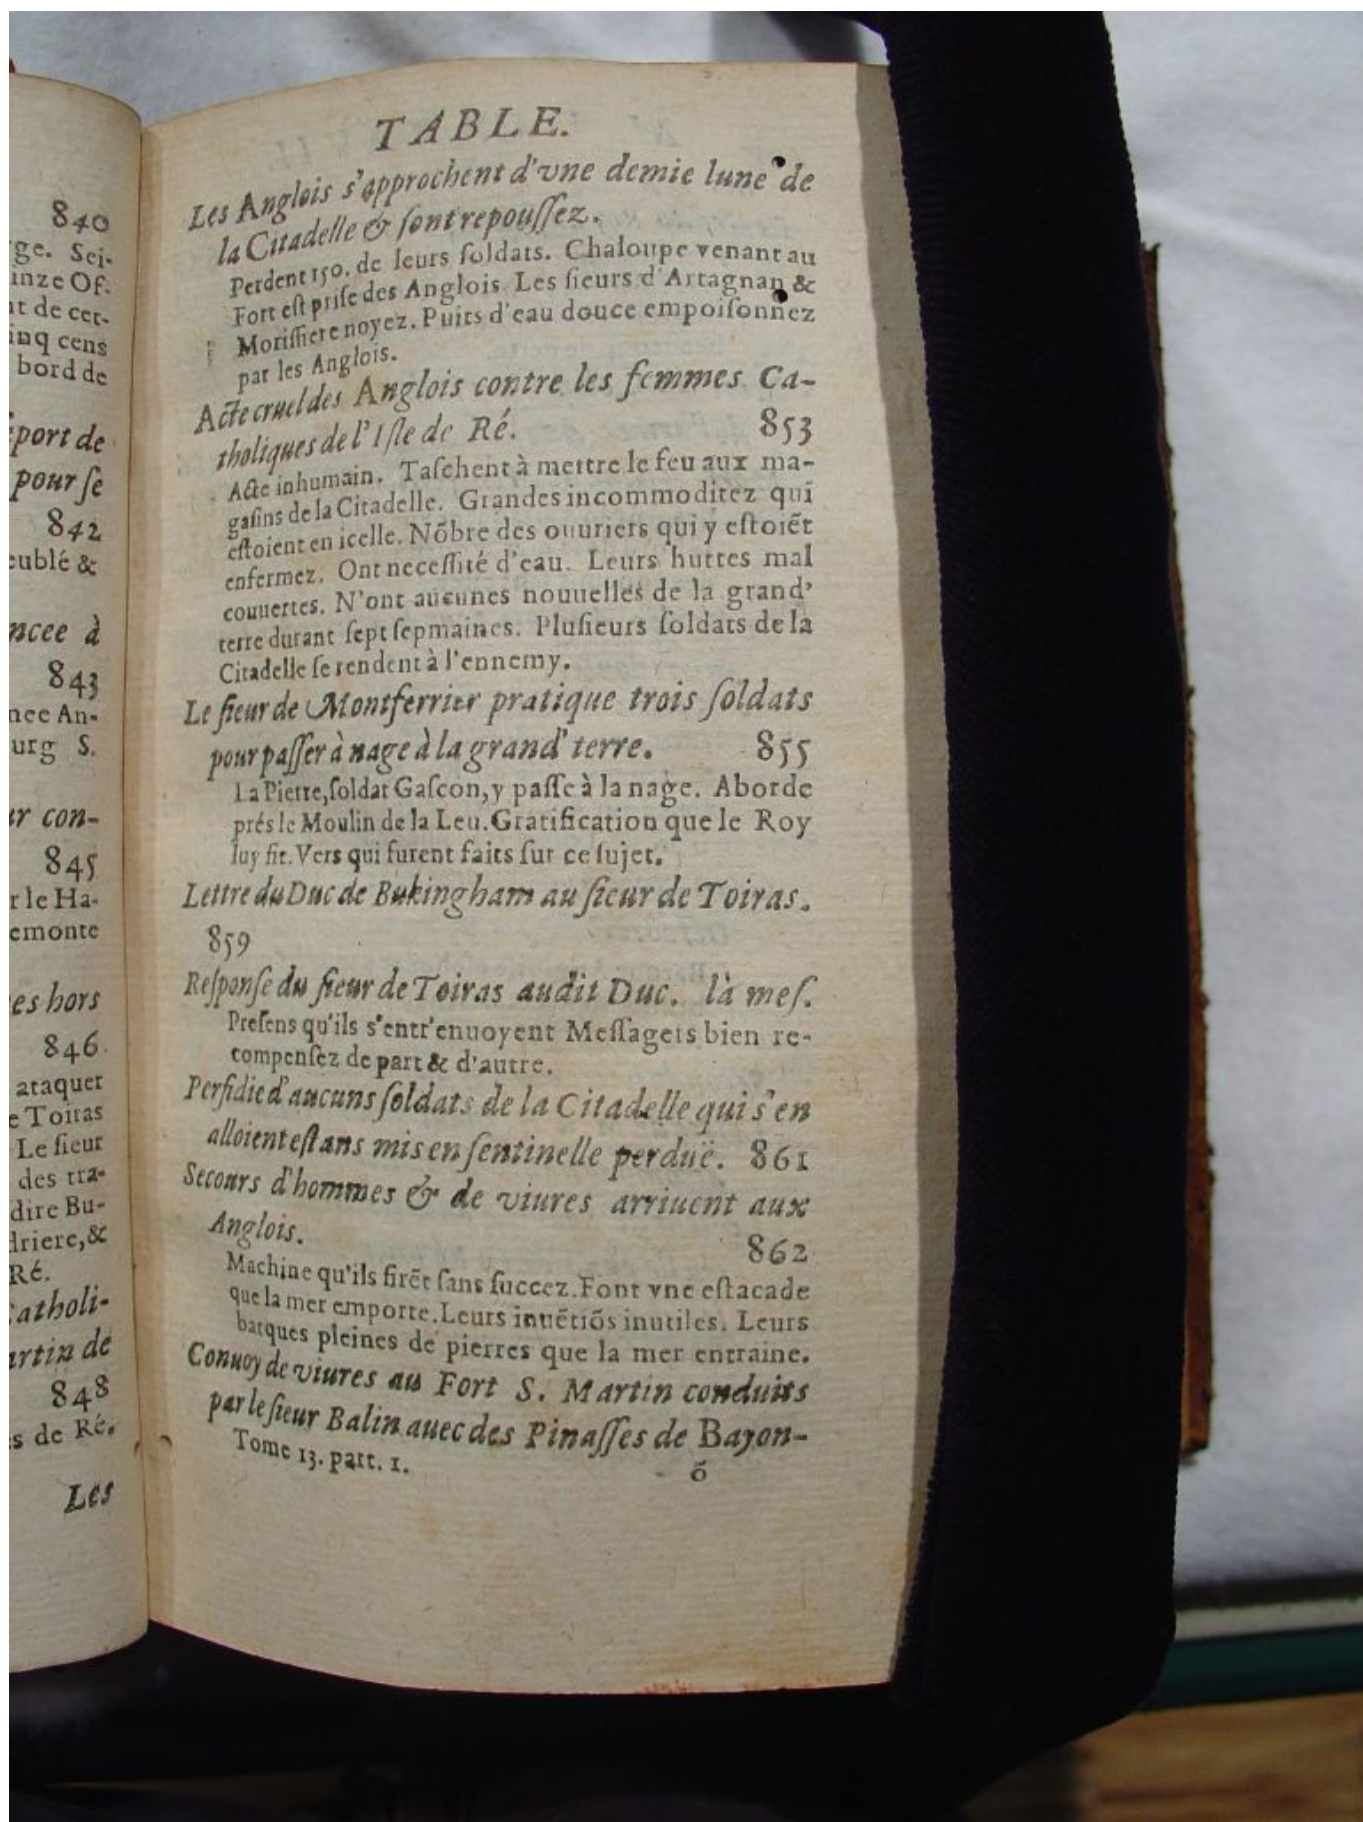 840
ge. Sei-
inze Of-
nt de cer-
inq cens
bord de
port de
pour ſe
842
eublé &
ncee à
843
nee An-
urg S.
ur con-
845
r le Ha-
emonte
es hors
846
ataquer
e Toiras
Le ſieur
des tra-
dire Bu-
driere, &
Ré.
Catholi-
artin de
848
s de Ré.
Les
TABLE.
Les Anglois s'approchent d'vne demie lune de
la Citadelle & ſont repouſſez.
Perdent 150. de leurs ſoldats. Chaloupe venant au
Fort eſt priſe des Anglois. Les ſieurs d'Artagnan &
Moriſſiere noyez. Puits d'eau douce empoiſonnez
par les Anglois.
Acte cruel des Anglois contre les femmes Ca-
tholiques de l'Iſle de Ré. 853
Acte inhumain. Taſchent à mettre le feu aux ma-
gaſins de la Citadelle. Grandes incommoditez qui
eſtoient en icelle. Nõbre des ouuriers qui y eſtoiẽt
enfermez. Ont neceſſité d'eau. Leurs huttes mal
couuertes. N'ont aucunes nouuelles de la grand'
terre durant ſept ſepmaines. Pluſieurs ſoldats de la
Citadelle ſe rendent à l'ennemy.
Le ſieur de Montferrier pratique trois ſoldats
pour paſſer à nage à la grand' terre. 855
La Pierre, ſoldat Gaſcon, y paſſe à la nage. Aborde
prés le Moulin de la Leu. Gratification que le Roy
luy fit. Vers qui furent faits ſur ce ſujet.
Lettre du Duc de Bukingham au ſieur de Toiras.
859
Reſponſe du ſieur de Toiras audit Duc. là meſ.
Preſens qu'ils s'entr'enuoyent Meſſagers bien re-
compenſez de part & d'autre.
Perfidie d'aucuns ſoldats de la Citadelle qui s'en
alloient eſtans mis en ſentinelle perduë. 861
Secours d'hommes & de viures arriuent aux
Anglois. 862
Machine qu'ils firẽt ſans ſuccez. Font vne eſtacade
que la mer emporte. Leurs inuẽtiõs inutiles. Leurs
barques pleines de pierres que la mer entraine.
Conuoy de viures au Fort S. Martin conduits
par le ſieur Balin auec des Pinaſſes de Bayon-
Tome 13. part. 1. õ